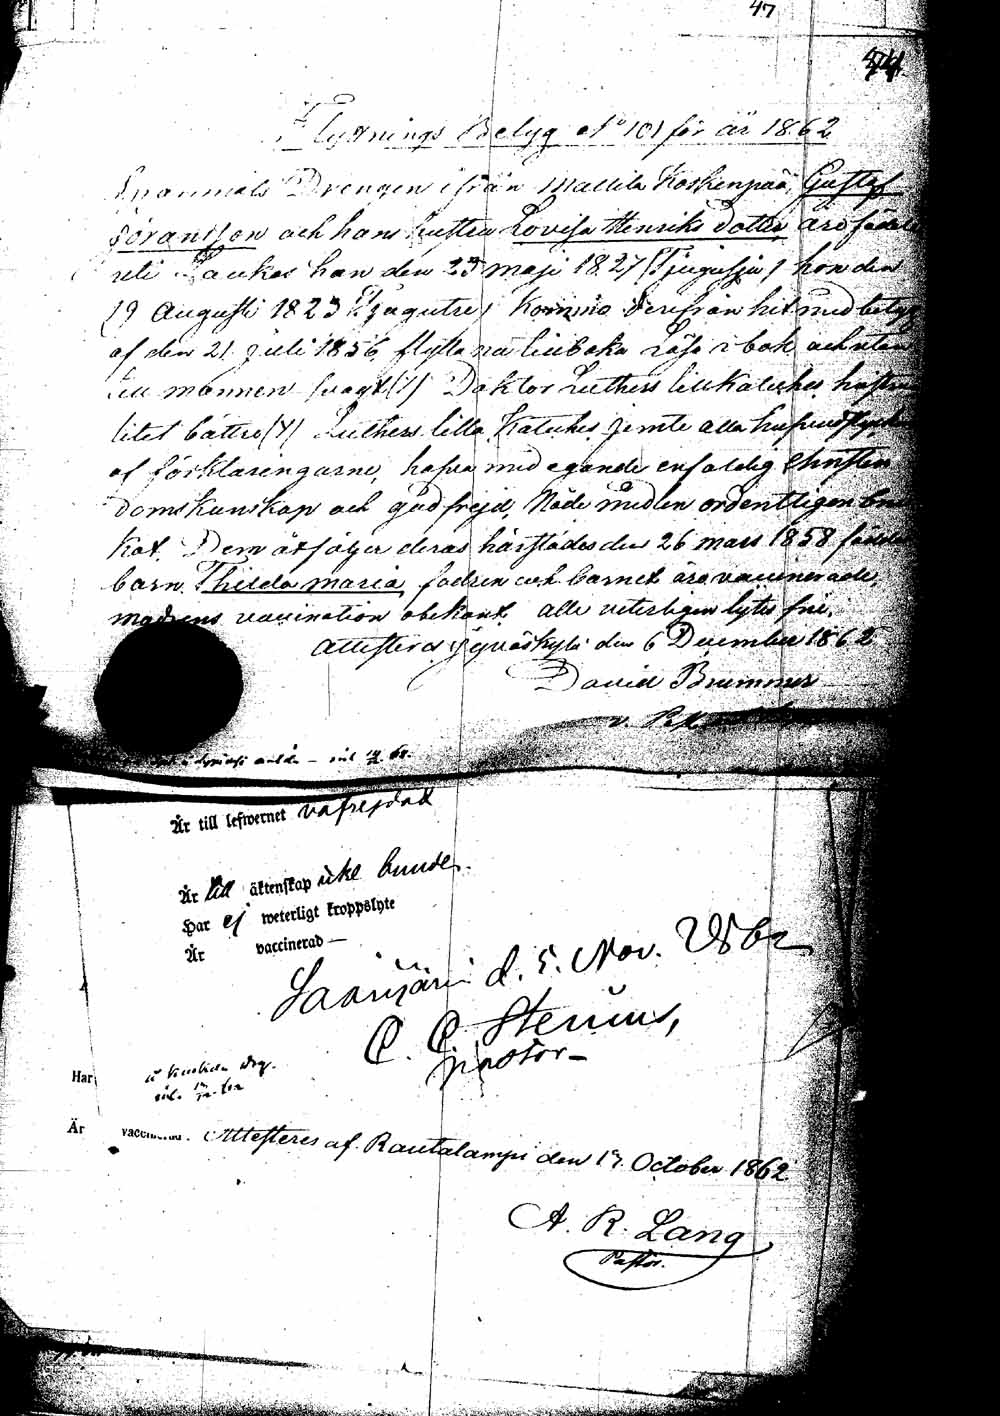 47
Flyttnings Belyg No 101 för år 1862
Drengen ifrån Mattila Koskenpää, Gustaf
Göransson och hans hustru Lovisa Henriks dotter äro födde
uti Laukas han den 23 maji 1827 (Tjugusju) hon den
19 Augusti 1823 komno derifrån hit med betyg
af den 21 Juli 1856, flytta nu tillbaka läsa i bok och utan
till mannen svagt (1) Doktor Luthers lilla Kateches, hustrun
litet bättre Luthers lilla Kateches jemte alla
af förklaringarne, hafva med egande enfaldig Christen
domskunskap och god frejd, Nåde medlen ordentligen bru
kat. Dem åtföljer deras härstädes den 26 mars 1858 födde
barn Thilda Maria, fadren och barnet äro vaccinerade,
modrens vaccination obekant, alle veterligen lytes fria,
Attesteras Jyväskylä den 6 December 1862
David Brummer
v. Past.
Är till lefwernet
Är till äktenskap icke bunden.
Har ej weterligt kroppslyte
Är vaccinerad —
Saarijärvi d. 5. Nov. 1862
C. C. Stenius,
pastor —
Har
Är vaccinerad. Attesteres af. Rautalampi den 17. October 1862
A. R. Lang
Pastor.